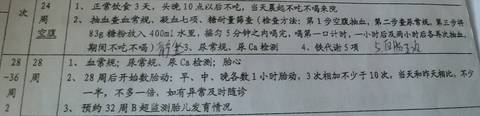 24
周
空腹
1、正常饮食 3 天，头晚 10 点以后不吃，当天晨起不吃不喝来院
2、抽血量血常规，凝血七项、糖耐量筛查（检查方法：第 1 步空腹抽血，第二步量尿常规，第三步将
83g 糖粉放入 400ml 水里，摇匀 5 分钟之内喝完，喝第一口计时，一小时后及两小时后各再次抽血，
期间不吃不喝） 3、尿常规、尿 Ca 检测 4、铁代谢 5 项
次
28
~36
周
2
28
周
1、血常规；尿常规、尿 Ca 检测；胎心
2、28 周后开始数胎动：早、中、晚各数 1 小时胎动，3 次相加不少于 10 次，当天和昨天相比，不少
一半，不多一倍，如有异常及时随诊
3、预约 32 周 B 超监测胎儿发育情况